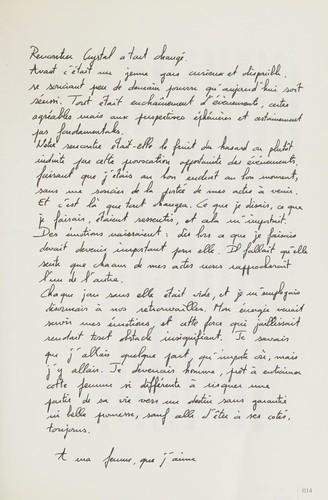 Rencontrer Crystal a tout changé.
Avant c'était un jeune gars curieux et disponible,
se souciant peu de demain pourvu qu'aujourd'hui soit
réussi. Tout était enchaînement d'événements, certes
agréables mais aux perspectives éphémères et certainement
pas fondamentales.
Notre rencontre était-elle le fruit du hasard ou plutôt
induite par cette provocation opportuniste des événements,
faisant que j'étais au bon endroit au bon moment,
sans me soucier de la portée de mes actes à venir.
Et c'est là que tout changea. Ce que je disais, ce que
je faisais, étaient ressentis, et cela m'importait.
Des émotions naissaient : dès lors ce que je faisais
devait devenir important pour elle. Il fallait qu'elle
sente que chacun de mes actes nous rapprocherait
l'un de l'autre.
Chaque jour sans elle était vide, et je m'employais
désormais à nos retrouvailles. Mon énergie venait
servir mes émotions, et cette force qui jaillissait
rendait tout obstacle insignifiant. Je savais
que j'allais quelque part, qu'importe où, mais
j'y allais. Je devenais homme, prêt à entraîner
cette femme si différente à risquer une
partie de sa vie vers un destin sans garantie
ni belle promesse, sauf celle d'être à ses côtés,
toujours.
A ma femme, que j'aime
014